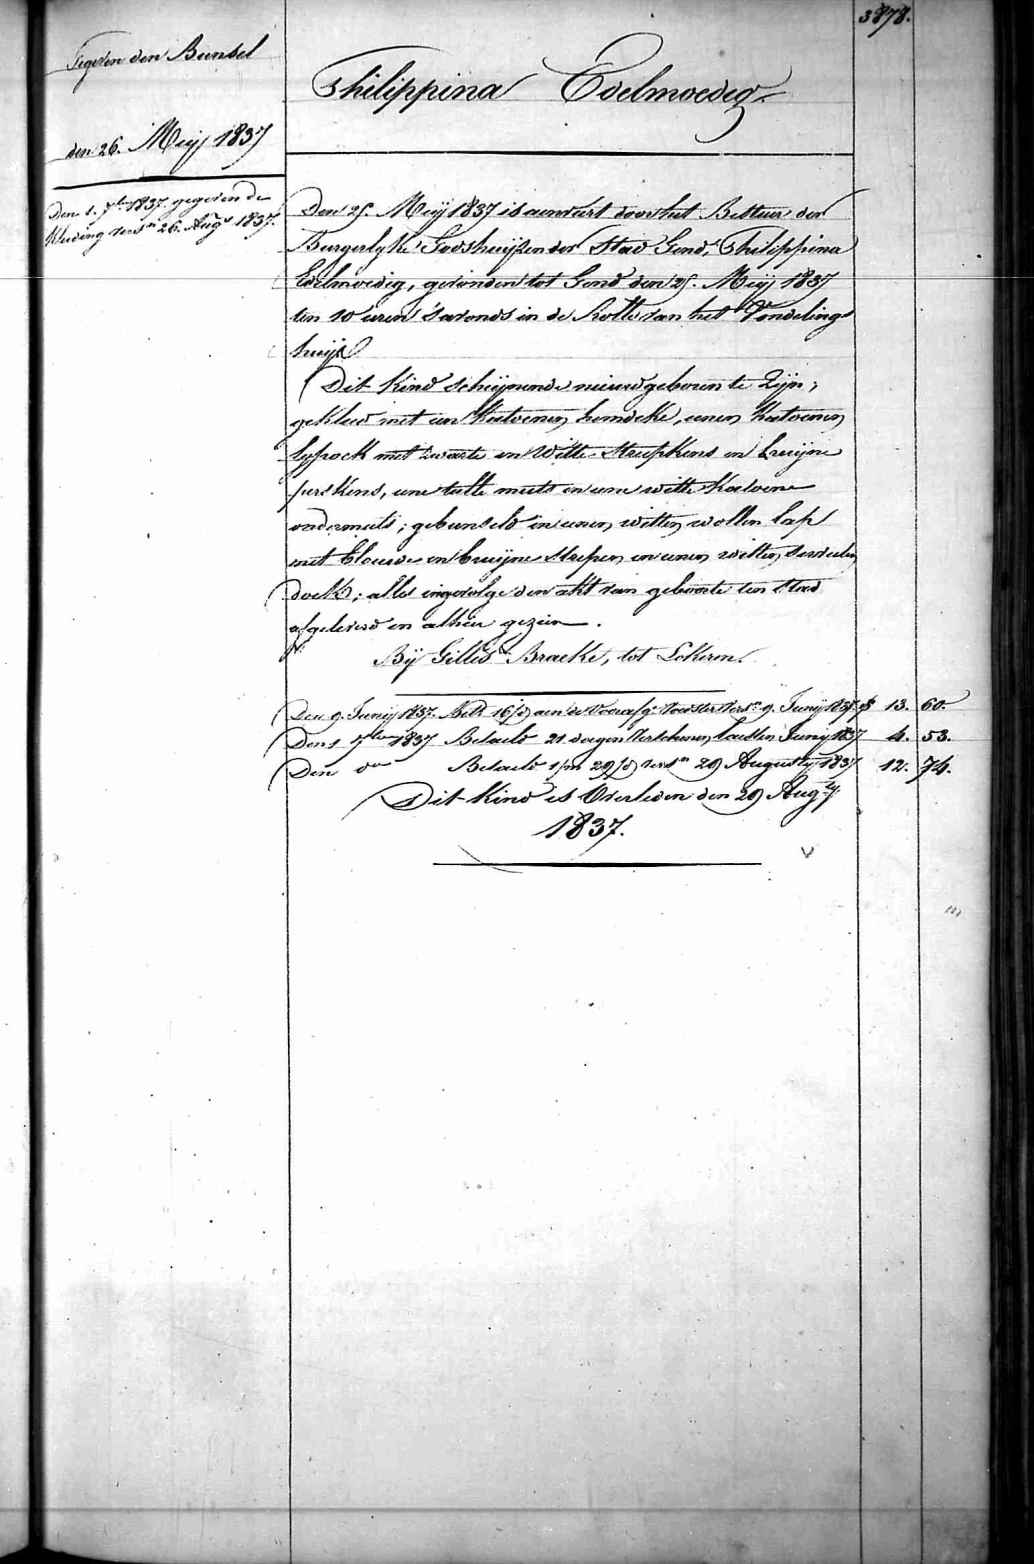 3878.
Gegeven den Bunsel
den 26. Meij 1837
Den 1. 7ber 1837 gegeven de
kleeding vers.n 26. Augs 1837.
Philippina Edelmoedig
Den 25. Meij 1837 is aenveirt door het Bestuer der
Burgerlyke Godshuijzen der Stad Gend, Philippina
Edelmoedig, gevonden tot Gend den 25. Meij 1837
ten 10 uren s'avonds in de Rolle van het Vondelings
huijs
Dit kind scheijnende nieuwgeboren te Zijn,
gekleed met een katoenen hemdeke, eenen katoenen
lyfrock met zwarte en Witte Streepkens en bruijne
perskens, eene tulle muts en eene witte katoene
ondermuts; gebunseld in eenen witten wollen lap
met blauwe en bruijne strepen en eenen witten
doek; alles ingevolge den akt van geboorte ten Stad
afgeleverd en alhier gezien.
Bij Gillis Braeke, tot Lokeren.
Den 9. Junij 1837. aen de Voedster Vers.n 9. Junij 1837 13. 60.
Den 1 7ber 1837 Betaeld 21 dagen Junij 1837 4. 53.
Den do Betaeld vers.n 29 Augusty 1837 12. 74.
Dit kind is Overleden den 29 Augty
1837.